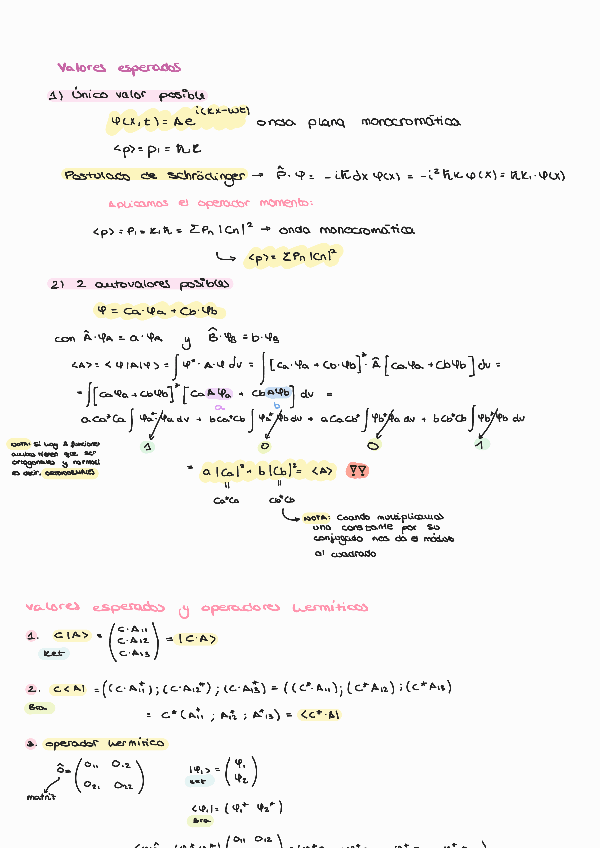 Valores esperados
1) Único valor posible
φ(x,t) = A e^i(kx-wt) onda plana monocromática
<p> = p₁ = ℏk
Postulado de Schrödinger → P̂·φ = -iℏdx φ(x) = -i²ℏk φ(x) = ℏk₁·φ(x)
Aplicamos el operador momento:
<p> = P₁ = k₁ℏ = ΣPn |Cn|² → onda monocromática
↳ <p> = ΣPn |Cn|²
2) 2 autovalores posibles
φ = Ca·φa + Cb·φb
con Â·φA = a·φA y B̂·φB = b·φB
<A> = <φ|A|φ> = ∫φ*·A·φ dv = ∫[Ca·φa + Cb·φb]*·Â[Caφa + Cbφb] dv =
= ∫[Caφa + Cbφb]* [CaAφa + CbAφb] dv =
a b
aCa*Ca ∫φa*φa dv + bCa*Cb ∫φa*φb dv + aCaCb* ∫φb*φa dv + bCb*Cb ∫φb*φb dv
1 0 0 1
NOTA: Si hay 2 funciones
ortogonales y
es decir, ortonormales
= a|Ca|² + b|Cb|² = <A> !!
Ca*Ca Cb*Cb
NOTA: Cuando multiplicamos
una constante por su
conjugado nos da el módulo
al cuadrado
Valores esperados y operadores hermíticos
1. C|A> = (C·A11 C·A12 C·A13) = |C·A>
Ket
2. C<A| = ((C·A11*); (C·A12*); (C·A13*) = ((C*·A11); (C*A12); (C*A13)
Bra
= C*(A11*; A12*; A13*) = <C*·A|
3. Operador hermítico
Ô = (O11 O12 O21 O22) |φ₁> = (φ₁ φ₂)
matriz ket
<φ₁| = (φ₁* φ₂*)
Bra
(O11 O12